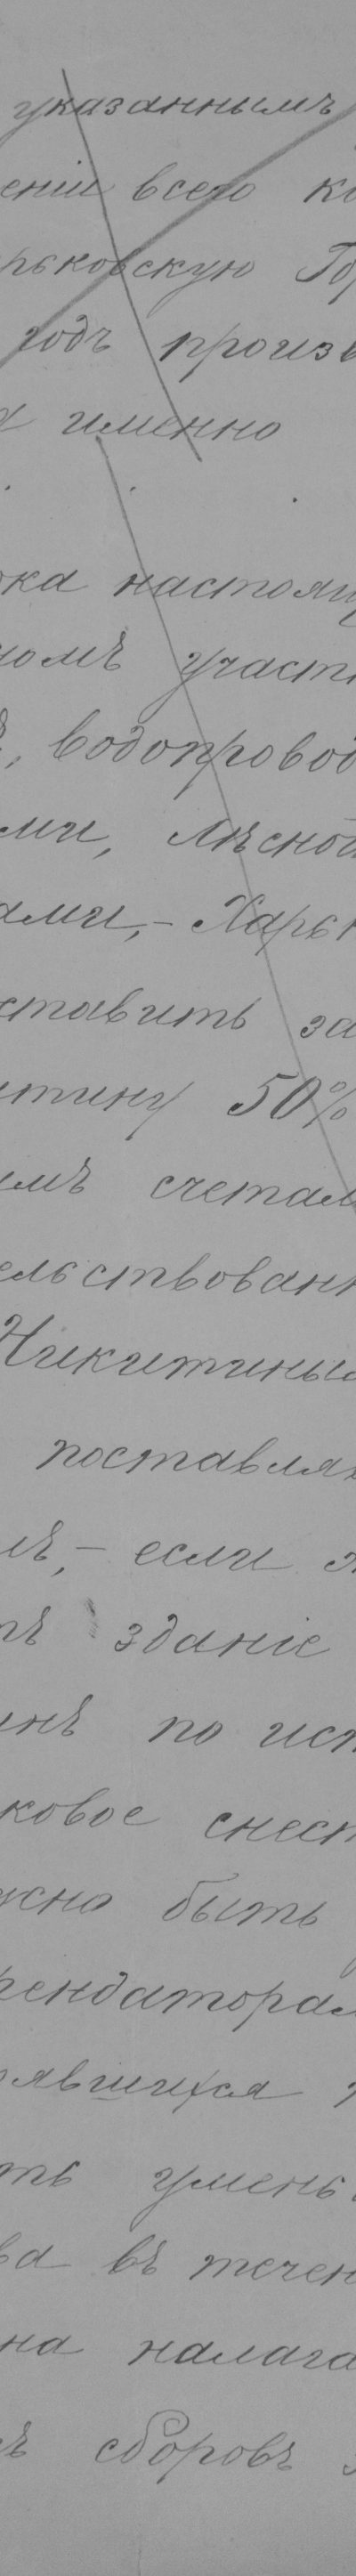 указаннымъ
еніи всего ко
рьковскую Гор
годъ произв
а именно
ока настоящ
номъ участк
ѣ, водопровод
ми, лѣсной
ами, – Харьк
ставить за
итину 50%
имъ счетам
ельствован
Никитиным
поставля
мъ, – если
тъ зданіе
инъ по ист
ковое снест
жно быть
рендаторам
оявшихся
ть умень
ва въ течен
на налага
ъ сборовъ